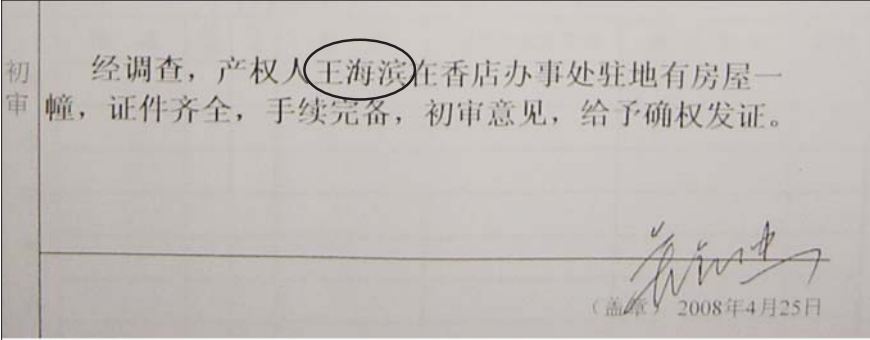 初审
经调查，产权人王海滨在香店办事处驻地有房屋一
幢，证件齐全，手续完备，初审意见，给予确权发证。
（盖章） 2008年4月25日